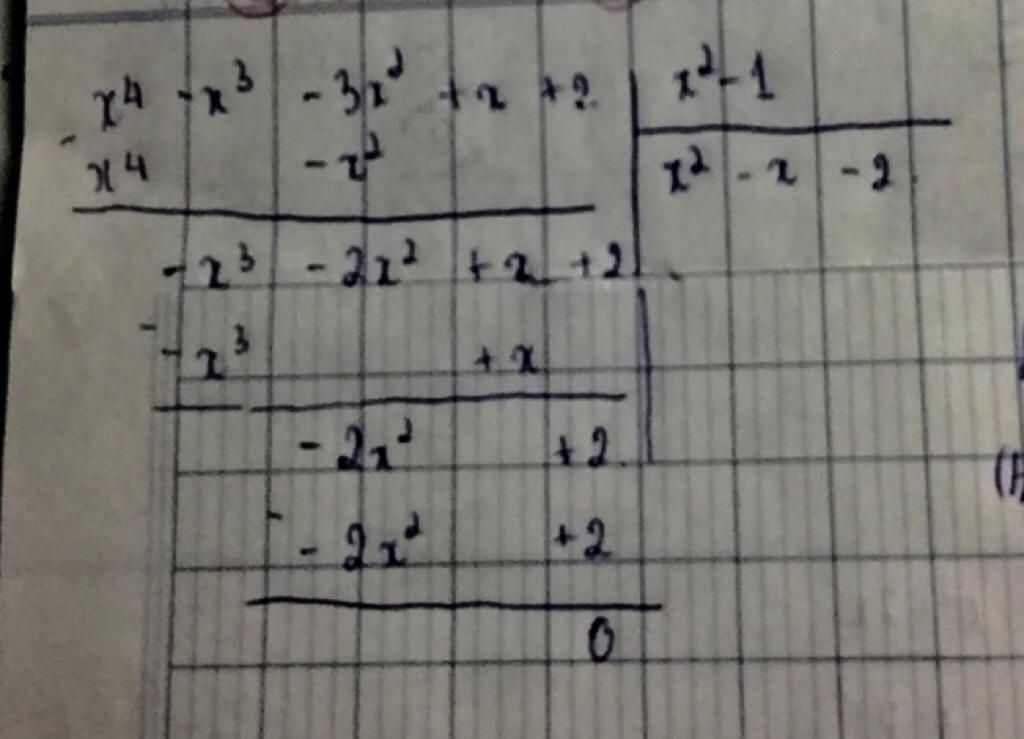 x⁴ - x³ - 3x² + x + 2 | x² - 1
- x⁴ - x² | x² - x - 2
- x³ - 2x² + x + 2
- - x³ + x
- 2x² + 2
- - 2x² + 2
0